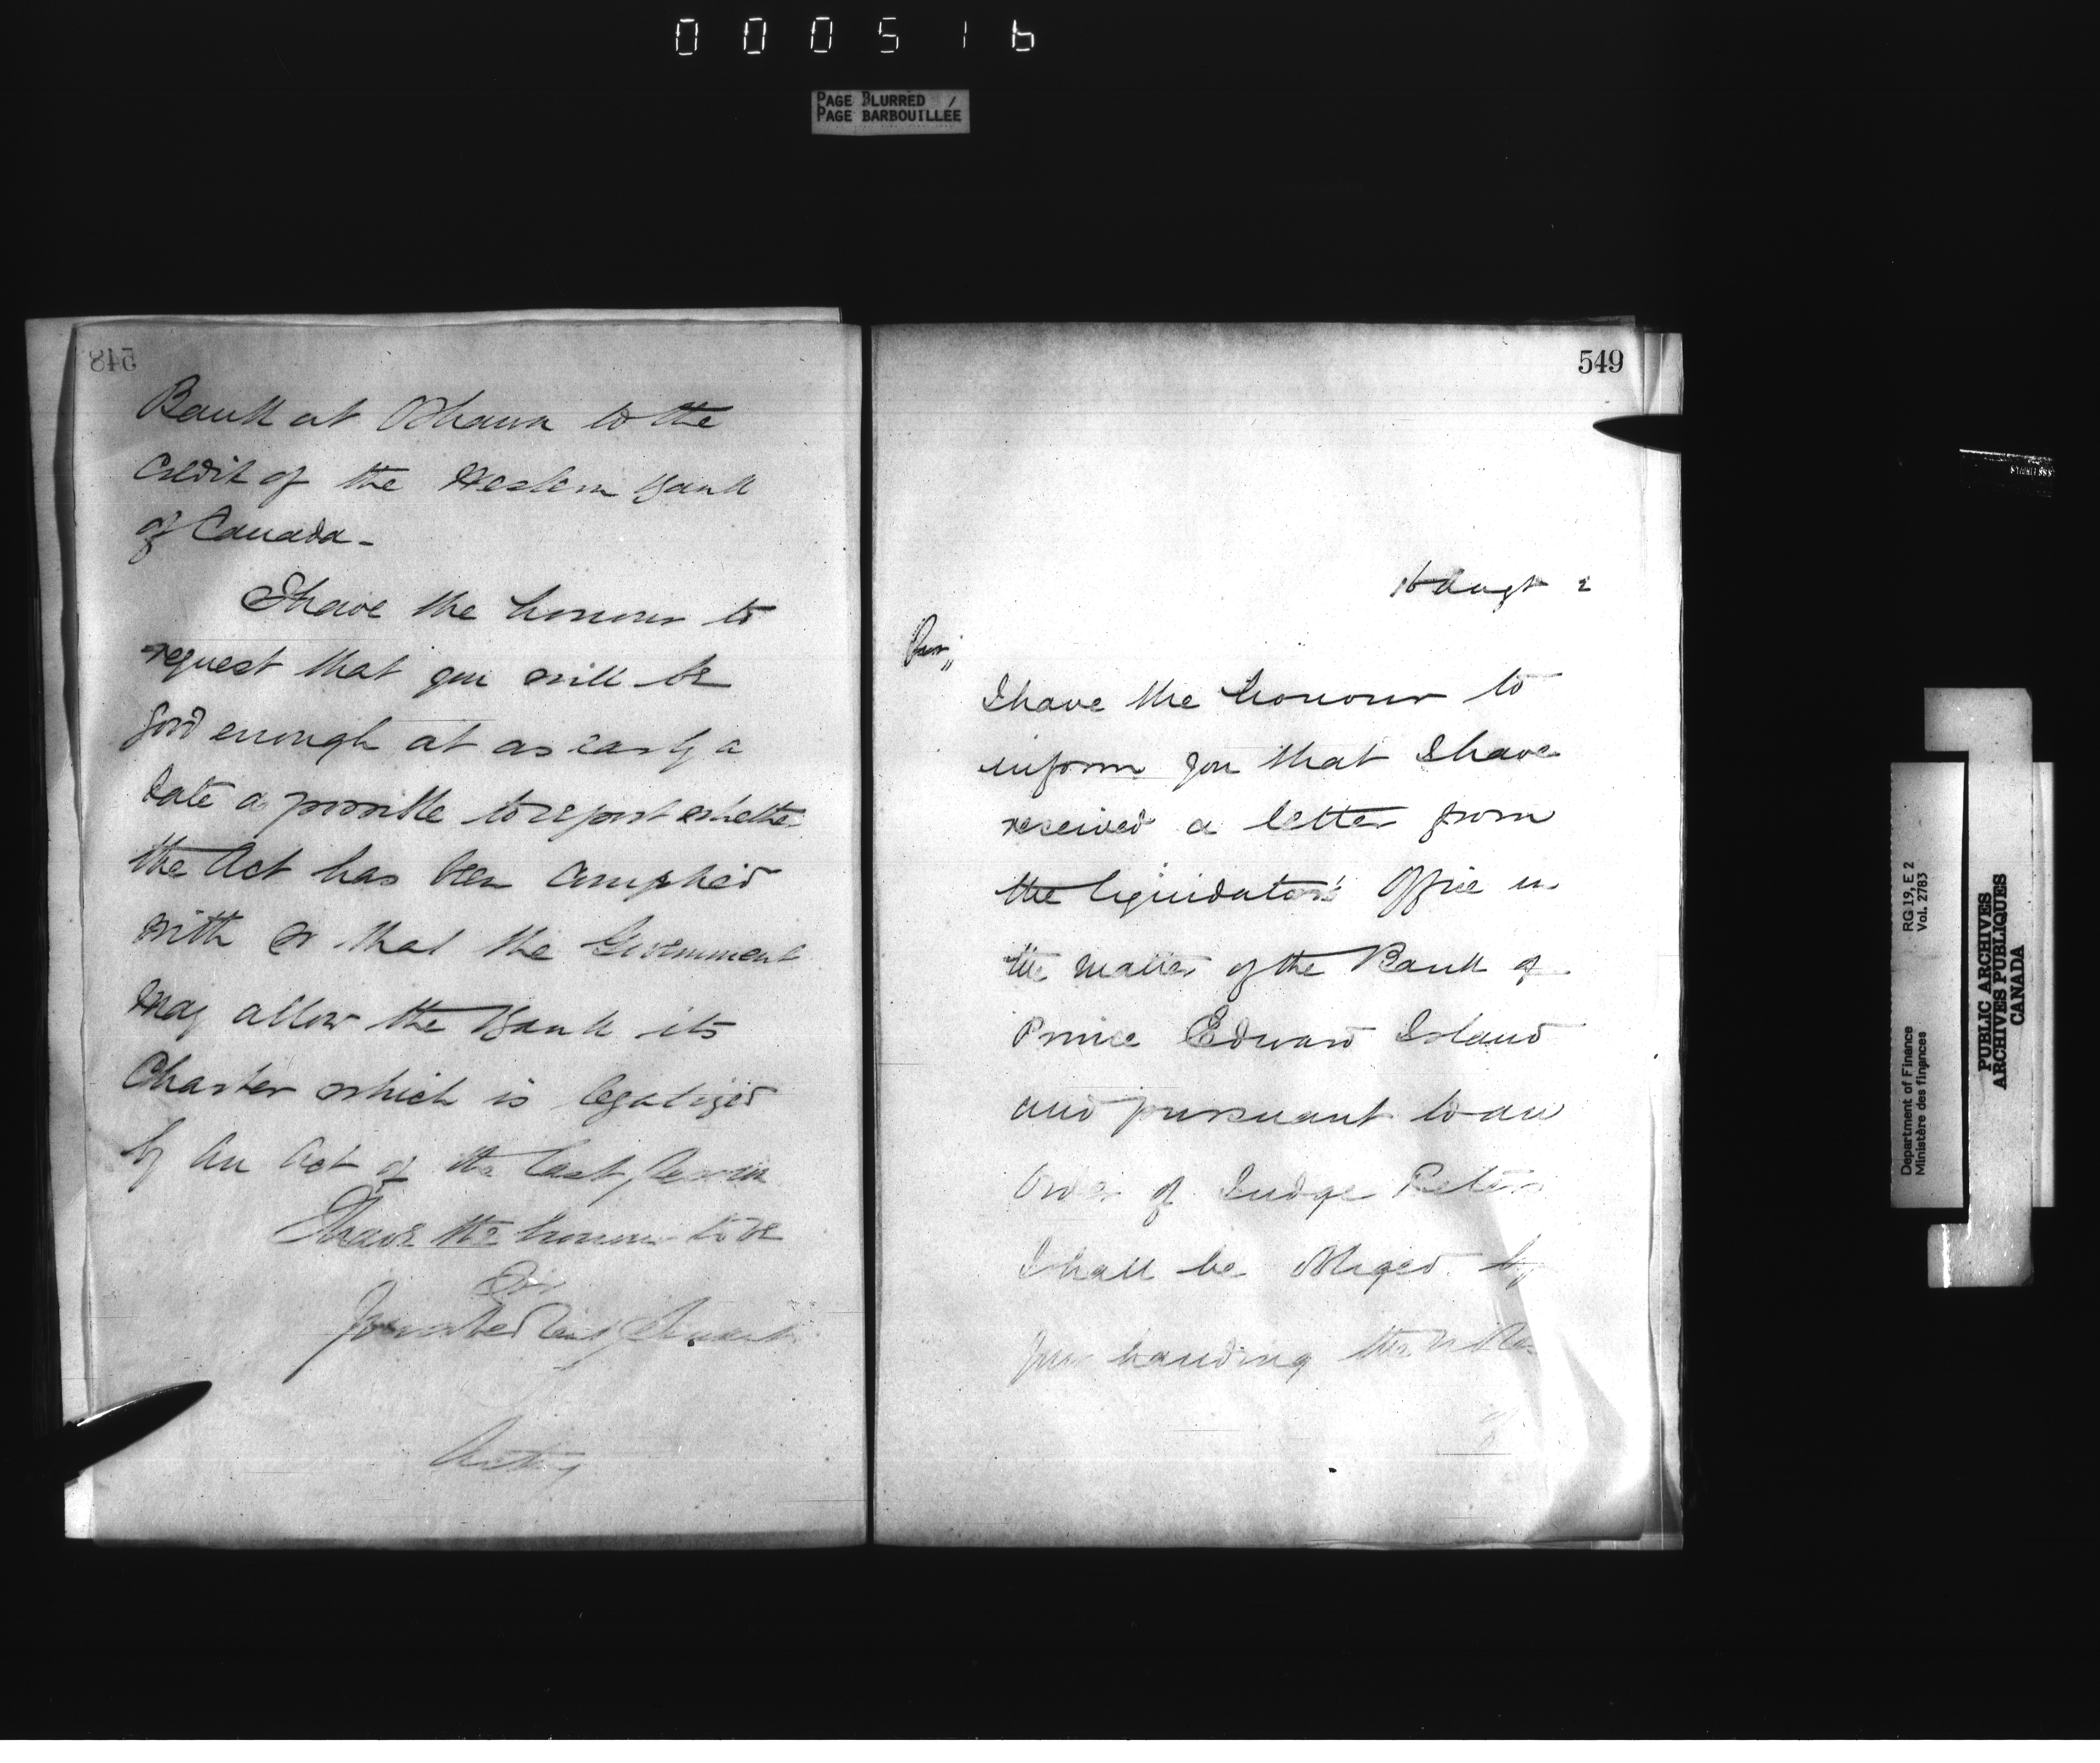 000516
PAGE BLURRED
PAGE BARBOUILLÉE
548
Bank at Oshawa to the
Credit of the Western Bank
of Canada -
I have the honour to
request that you will be
good enough at as early a
date as possible to report whether
the Act has been complied
with so that the Government
may allow the Bank its
Charter which is legalized
by an Act of the last Session
I have the honour to be
Sir
Your obed Servant
Acting
549
16 Augt 2
Sir,
I have the honour to
inform you that I have
received a letter from
the liquidators' Office in
the matter of the Bank of
Prince Edward Island
and pursuant to an
Order of Judge Peters
I shall be obliged by
your handing the
Department of Finance
Ministère des finances
RG 19, E 2
Vol. 2783
PUBLIC ARCHIVES
ARCHIVES PUBLIQUES
CANADA